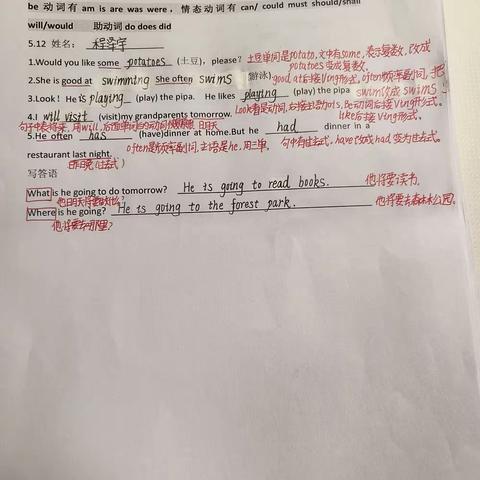 be 动词有 am is are was were，情态动词有 can/ could must should/shall
will/would 助动词 do does did
5.12 姓名：
1.Would you like some potatoes （土豆）, please? 土豆单词是potato,文中有some,表示复数,改成
potatoes变成复数。
2.She is good at swimming She often swims （游泳） good at后接Ving形式,often频率副词,把
swim改成swims
3.Look！ He is playing (play) the pipa. He likes playing (play) the pipa
Look看是动词,后接主语he is, Be动词后接Ving形式。
like后接Ving形式。
4.I will visit (visit)my grandparents tomorrow.
句子中表将来,用will,后面单词 明天
5.He often has (have)dinner at home.But he had dinner in a
restaurant last night. often是频率副词,主语是he,用三单。 句中有过去式,have改成had变为过去式。
昨日晚(过去式)
写答语
What is he going to do tomorrow? He is going to read books. 他将要读书。
他明天将要做什么?
Where is he going? He is going to the forest park. 他将要去森林公园。
他将要去哪里?